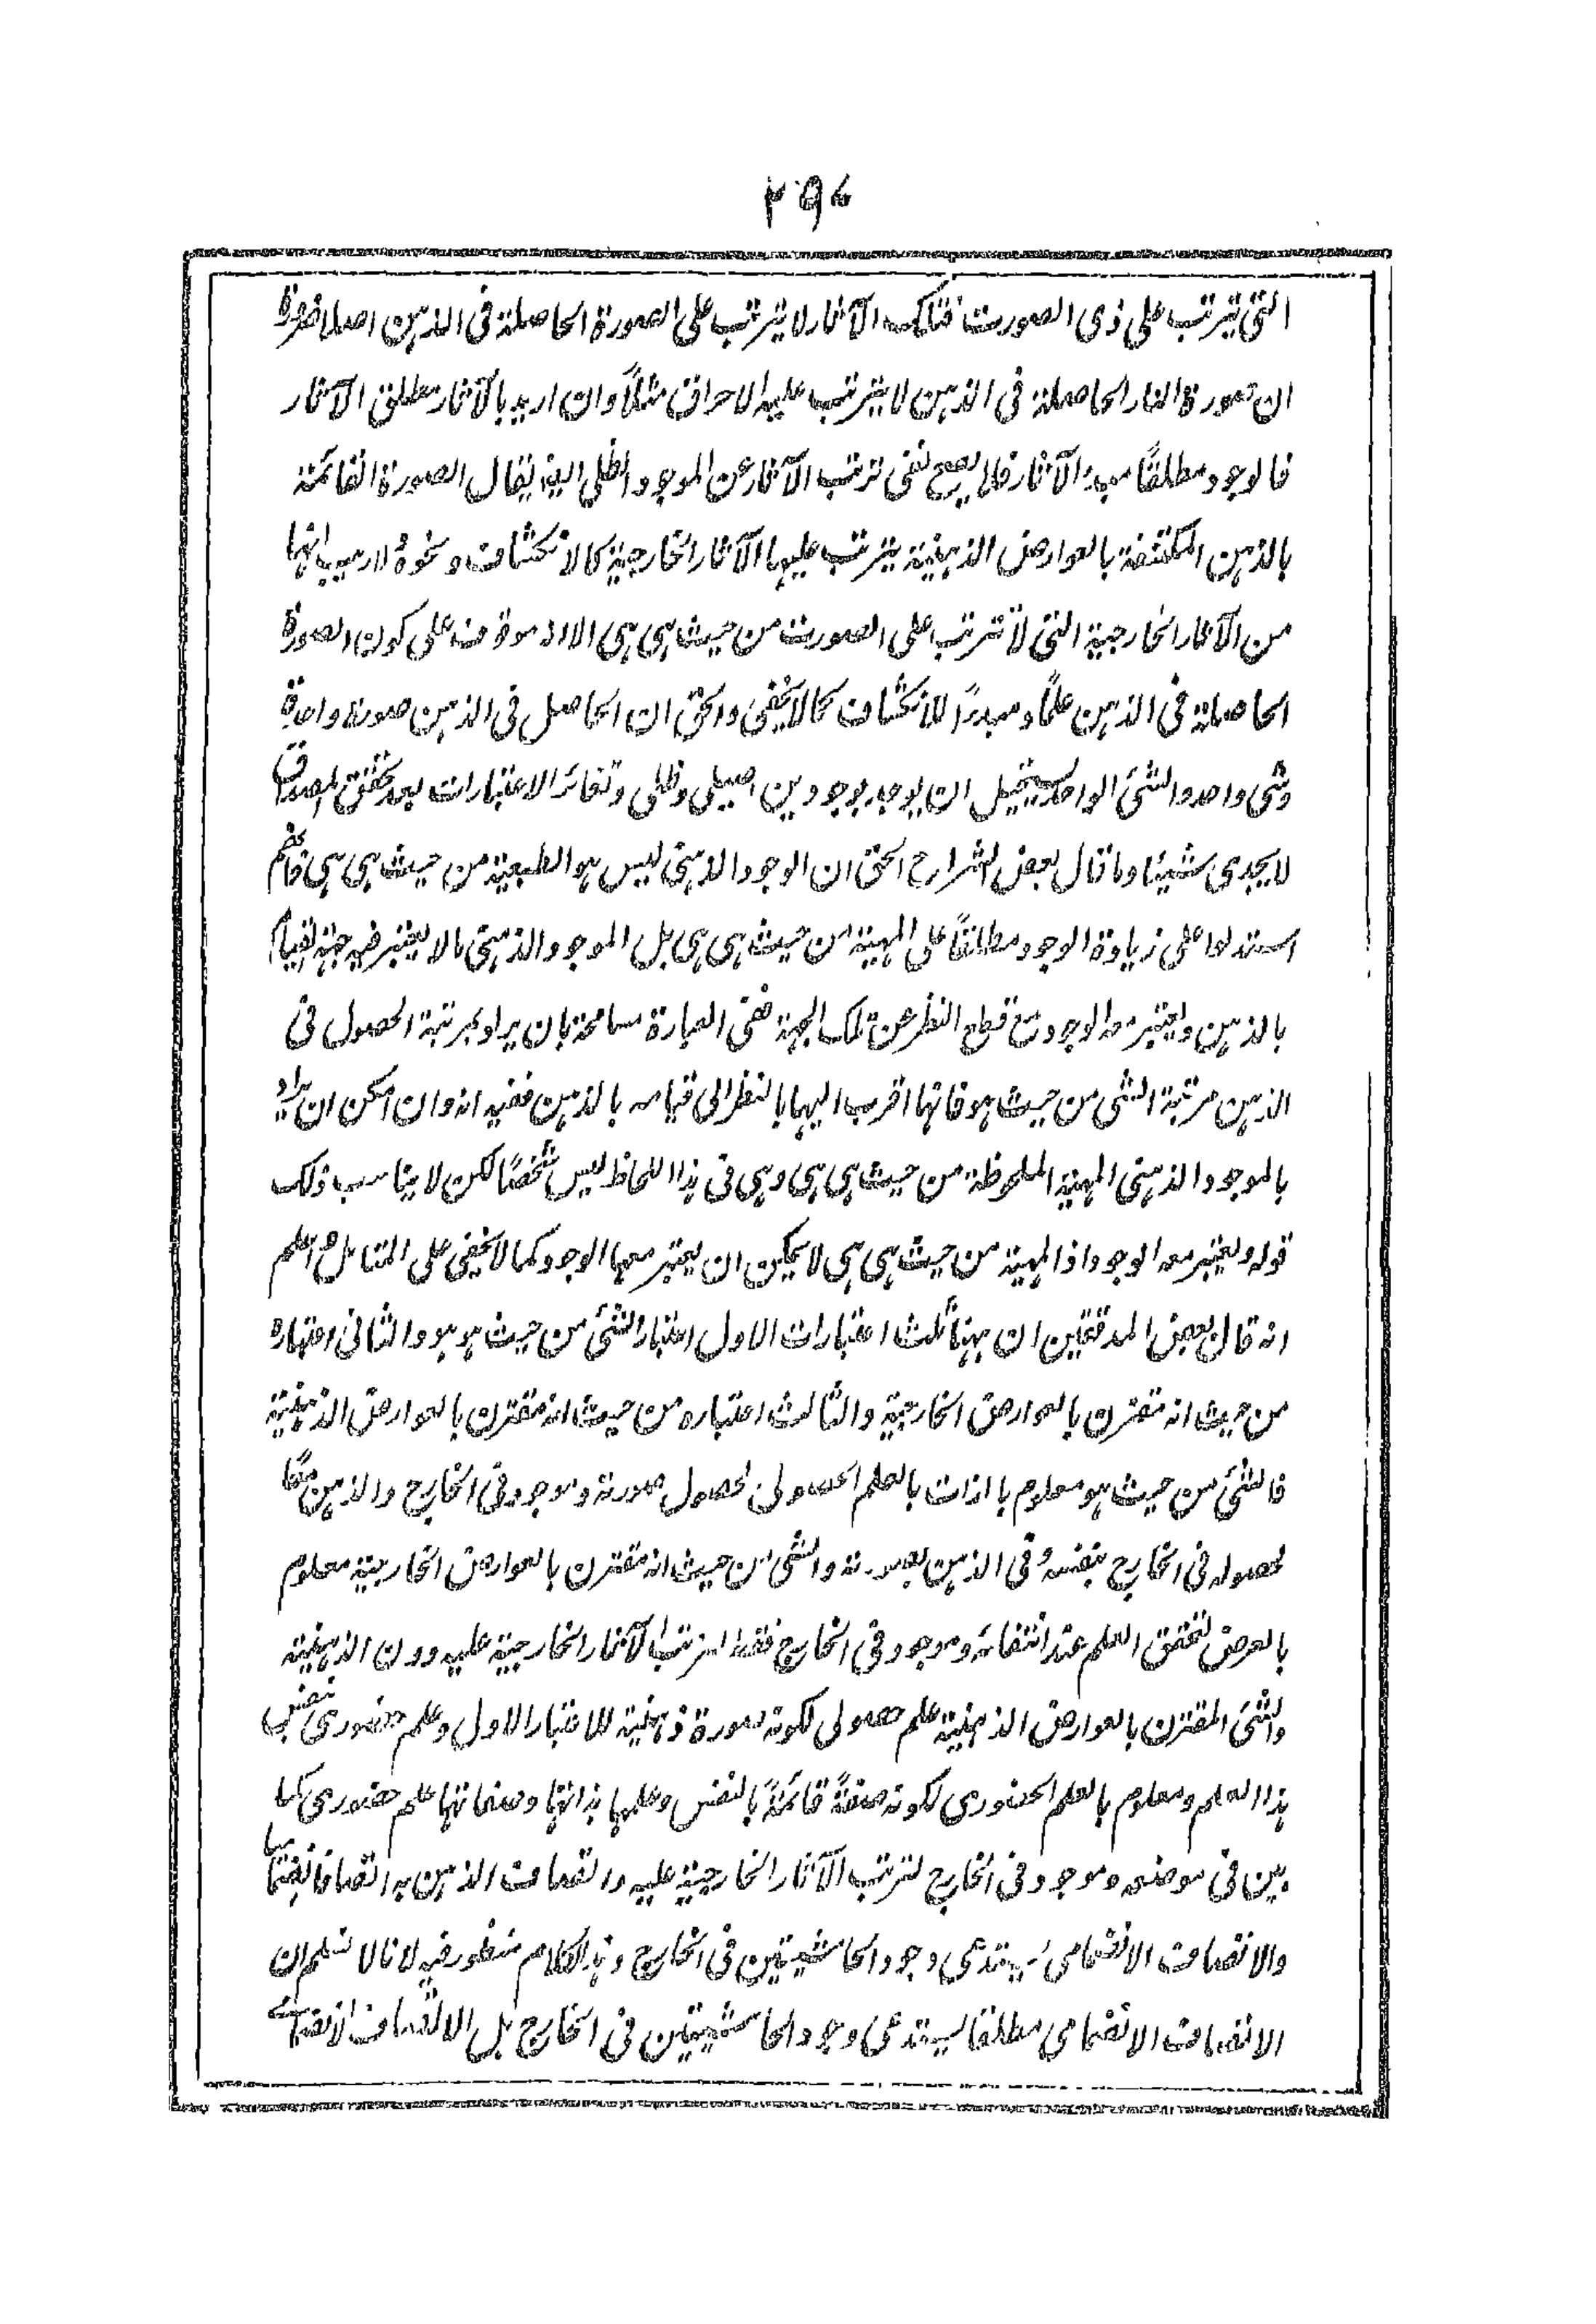 ٢٩٧
التى يترتب على ذى الصورت فتلك الآثار لا يترتب على الصورة الحاصلة فى الذهن اصلا ضرورة
ان صورة النار الحاصلة فى الذهن لا يترتب عليه الاحراق مثلاً وان اريد بالآثار مطلق الآثار
فالوجود مطلقًا مبدء الآثار فلا يصح نفى ترتب الآثار عن الموجود الظلى اليه يقال الصورة القائمة
بالذهن المكتنفة بالعوارض الذهنية يترتب عليها الآثار الخارجية كالانكشاف ونحوهُ لا ريب انها
من الآثار الخارجية التى لا تترتب على الصورت من حيث هى هى الا انه موقوف على كون الصورة
الحاصلة فى الذهن علمًا ومبدءً للانكشاف كما لا يخفى والحق ان الحاصل فى الذهن صورة واحدة
وشى واحد والشئ الواحد يستحيل ان يوجد بوجودين اصيلى وظلى وتغائر الاعتبارات بعد تحقق المصداق
لا يجدى شيئا وما قال بعض الشراح الحق ان الوجود الذهنى ليس هو الطبعية من حيث هى هى فانهم
استدلوا على زيادة الوجود مطلقًا على المهية من حيث هى هى بل الموجود الذهنى ما لا يعتبر فيه جهة القيام
بالذهن واعتبر معه الوجود مع قطع النظر عن تلك الجهة ففى العبارة مسامحة بان يراد بمرتبة الحصول فى
الذهن مرتبة الشى من حيث هو فانها اقرب اليها بالنظر الى قيامه بالذهن ففيه انه وان امكن ان يراد
بالموجود الذهنى المهية الملحوظة من حيث هى هى وهى فى هذا اللحاظ ليس شخصًا لكن لا يناسب ذلك
قوله ويعتبر معه الوجود اذ المهية من حيث هى هى لا يمكن ان يعتبر معها الوجود كما لا يخفى على المتامل ثم اعلم
انه قال بعض المدققين ان ههنا ثلث اعتبارات الاول اعتبار الشئ من حيث هو هو والثانى اعتباره
من حيث انه مقترن بالعوارض الخارجية والثالث اعتباره من حيث انه مقترن بالعوارض الذهنية
فالشئ من حيث هو معلوم بالذات بالعلم الحصولى لحصول صورته وموجود فى الخارج والذهن معًا
لحصوله فى الخارج بنفسهُ وفى الذهن بصورته والشى من حيث انه مقترن بالعوارض الخارجية معلوم
بالعرض لتحقق العلم عند انتفائه وموجود فى الخارج فقط لترتب الآثار الخارجية عليه دون الذهنية
والشئ المقترن بالعوارض الذهنية علم حصولى لكونه صورة ذهنية للاعتبار الاول وعلم حضورى بنفس
هذا العلم ومعلوم بالعلم الحضورى لكونه صفةً قائمةً بالنفس وعلمها بذاتها وصفاتها علم حضورى كما
بين فى موضعه وموجود فى الخارج لترتب الآثار الخارجية عليه واتصاف الذهن به اتصافا انضماميا
والاتصاف الانضمامى يستدعى وجود الحاشيتين فى الخارج وهذا الكلام منظور فيه لانا لا نسلم ان
الاتصاف الانضمامى مطلقا يستدعى وجود الحاشيتين فى الخارج بل الاتصاف